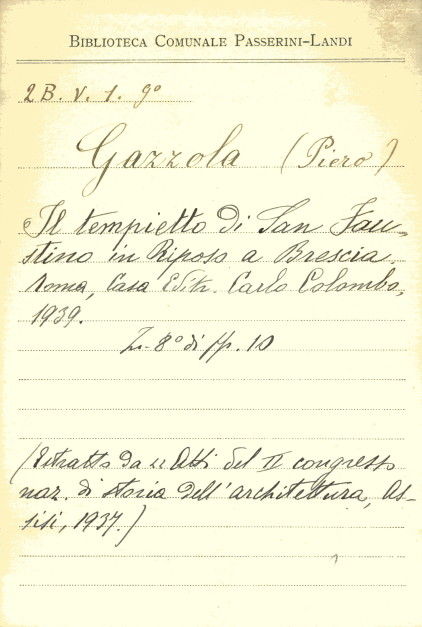 BIBLIOTECA COMUNALE PASSERINI-LANDI
2 B. V. 1. 9º
Gazzola (Piero)
Il tempietto di San Fau-
stino in Riposo a Brescia.
Roma, Casa Editr. Carlo Colombo,
1939.
In-8º di pp. 10
(Estratto da "Atti del II congresso
naz. di storia dell'architettura, As-
sisi, 1937.)